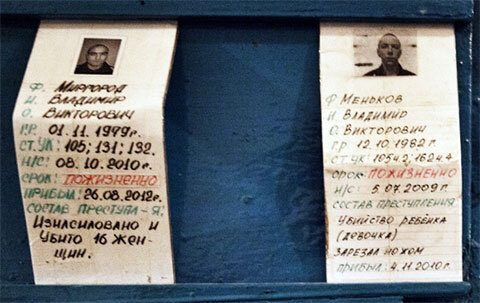 Ф. МИРГОРОД
И. ВЛАДИМИР
О. ВИКТОРОВИЧ
Г.Р. 01.11.1979г.
СТ.УК: 105; 131; 132.
Н/С: 08.10.2010г.
СРОК: ПОЖИЗНЕННО
ПРИБЫЛ: 26.08.2012г.
СОСТАВ ПРЕСТУПЛ-Я:
ИЗНАСИЛОВАНО И
УБИТО 16 ЖЕН-
ЩИН.
Ф МЕНЬКОВ
И. ВЛАДИМИР
О. ВИКТОРОВИЧ
Г.Р 12.10.1982г.
СТ.УК: 105ч2, 162ч4
СРОК: ПОЖИЗНЕННО
Н/С: 5.07.2009г.
СОСТАВ ПРЕСТУПЛЕНИЯ
УБИЙСТВО РЕБЁНКА
(ДЕВОЧКА)
ЗАРЕЗАЛ НОЖОМ
ПРИБЫЛ: 4.11.2010г.